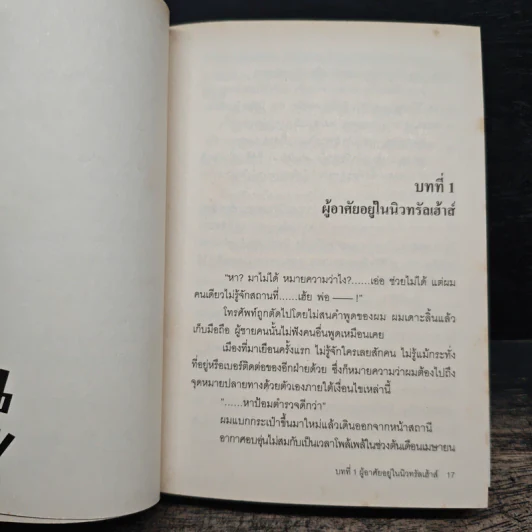 บทที่ 1
ผู้อาศัยอยู่ในนิวทรัลเฮ้าส์
"หา? มาไม่ได้ หมายความว่าไง?......เอ่อ ช่วยไม่ได้ แต่ผม
คนเดียวไม่รู้จักสถานที่......เฮ้ย พ่อ —— !"
โทรศัพท์ถูกตัดไปโดยไม่สนคำพูดของผม ผมเดาะลิ้นแล้ว
เก็บมือถือ ผู้ชายคนนั้นไม่ฟังคนอื่นพูดเหมือนเคย
เมืองที่มาเยือนครั้งแรก ไม่รู้จักใครเลยสักคน ไม่รู้แม้กระทั่ง
ที่อยู่หรือเบอร์ติดต่อของอีกฝ่ายด้วย ซึ่งก็หมายความว่าผมต้องไปถึง
จุดหมายปลายทางด้วยตัวเองภายใต้เงื่อนไขเหล่านี้
"......หาป้อมตำรวจดีกว่า"
ผมแบกกระเป๋าขึ้นมาใหม่แล้วเดินออกจากหน้าสถานี
อากาศอบอุ่นไม่สมกับเป็นเวลาโพล้เพล้ในช่วงต้นเดือนเมษายน
บทที่ 1 ผู้อาศัยอยู่ในนิวทรัลเฮ้าส์ 17